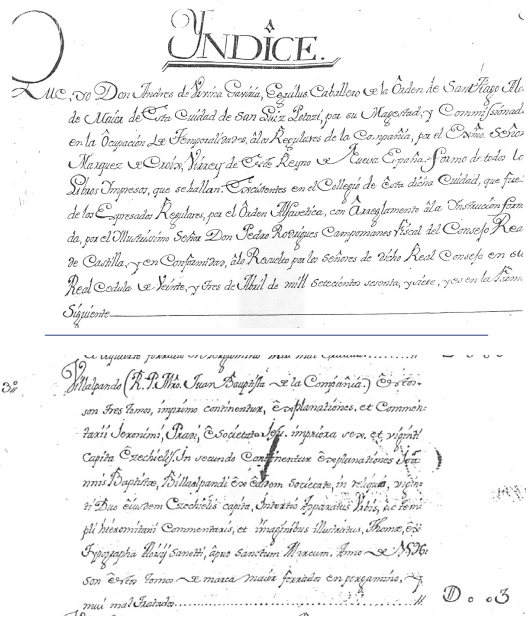 YNDICE.
Que, yo Don Andres de Urvina Gaviria, Eguilus Caballero de la Orden de Sant Tiago
de Maior de Esta Ciudad de San Luiz Potosi, por su Magestad, y Commissionad
en la Ocupacion de Temporalidades, à los Regulares de la Compañia, por el Exmo. Señor
Marquez de Croix, Virrey de Este Reyno de Nueva España. formo de todos lo
Libros Impresos, que se hallan Existentes en el Collegio de Esta dicha Ciudad, que fue
de los Expresados Regulares, por el Orden Alfavetica, con Arreglamento à la Instruccion form
da, por el Illustrissimo Señor Don Pedro Rodrigues Campomanes Fiscal del Consejo Rea
de Castilla, y en Conformidad, à lo Resuelto por los Señores de dicho Real Consejo en su
Real Cedula de Veinte, y Tres de Abril de mill Setecientos sesenta, y siete, y es en la Form
Siguiente
3
Villalpando (R. P. Mro. Juan Bauptista de la Compañia.) Estos
son tres tomos, in primo continentur, Explanationes, et Commen-
tarii Jeronimi, Pradi, è Societate Jesu. in priora sex, et viginti
Capita Ezechielis. In secundo Continentur explanationes Joa
nnis Baptistæ, Billualpandi ex Eadem Societate, in reliqua, vigin-
ti Duo eiusdem Ezechielis capita, In tertio Apparatus Urbis, ac tem
pli hierosolimitani Commentariis, et imaginibus illustratus, Romæ, ex
Typographia Aloisij Sanetti, apud Sanctum Marcum. Anno de
son estos tomos de marca maior forrados en pergamino, y
mui mal tratados II D..3